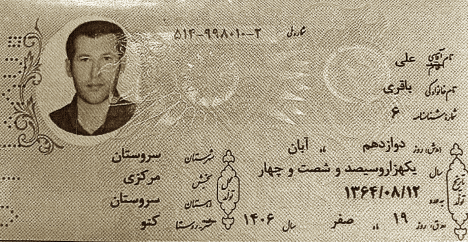 شماره ملی ۵۱۴-۹۹۸۰۱۰-۲
نام آقای علی
نام خانوادگی باقری
شماره شناسنامه ۶
روز دوازدهم ماه آبان شهرستان سروستان
سال یکهزاروسیصد و شصت و چهار بخش مرکزی
۱۳۶۴/۰۸/۱۲ دهستان سروستان
روز ۱۹ ماه صفر سال ۱۴۰۶ روستا کنو
تاریخ تولد
محل تولد